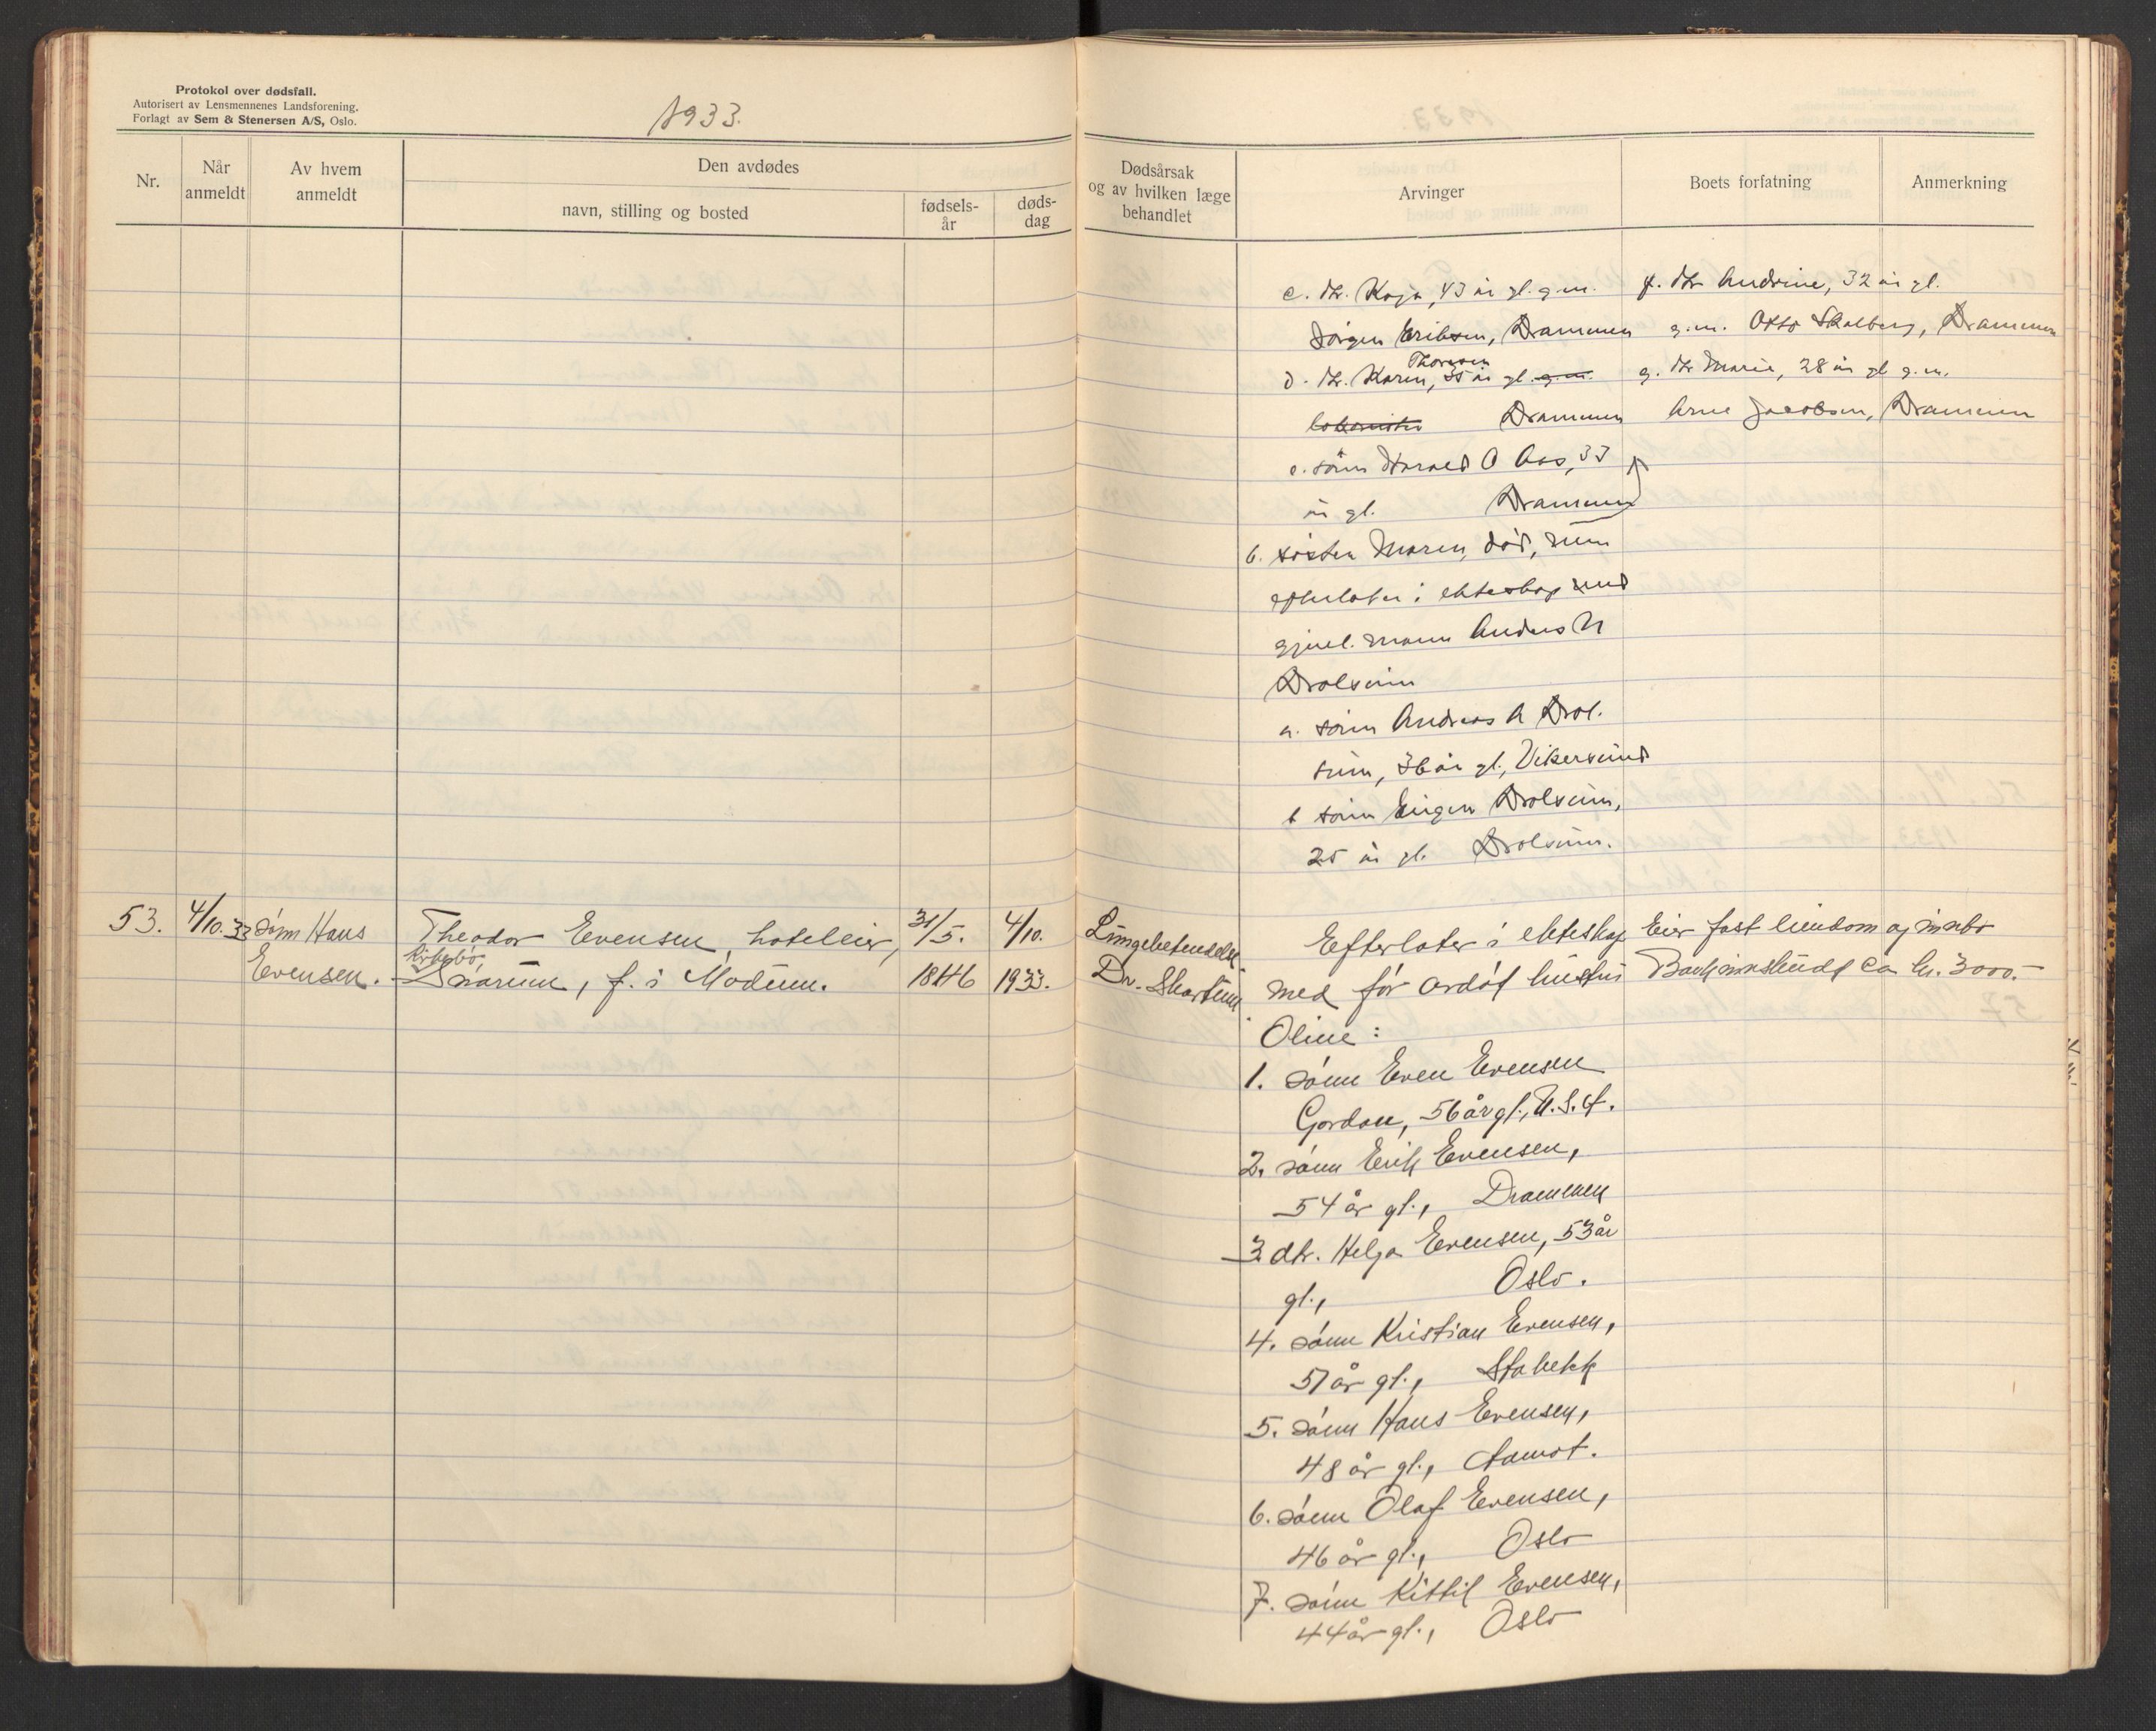 Protokol over dødsfall.
Autorisert av Lensmennenes Landsforening.
Forlagt av Sem & Stenersen A/S, Oslo.
1933.
Nr.
Når anmeldt
Av hvem anmeldt
Den avdødes
navn, stilling og bosted
fødsels-
år
døds-
dag
Dødsårsak
og av hvilken læge
behandlet
Arvinger
Boets forfatning
Anmerkning
c. dtr. Kaja, 43 år gl. g.m.
Jørgen Eriksen, Drammen
Thoresen
d. dtr. Karen, 35 år gl. g.m.
Drammen
e. sønn Harald O Aas, 33
år gl. Drammen
f. dtr Andrine, 32 år gl.
g.m. Otto Skalberg, Drammen
g. dtr Marie, 28 år gl g.m.
Arne Jacobsen, Drammen
6. søster Maren, død, som
efterlater i ekteskap med
gjenl. mann Anders A
Drolsum
a. sønn Andreas A Drol-
sum, 36 år gl., Vikersund
b sønn Eugen Drolsum,
25 år gl. Drolsum.
53. 4/10.33 sønn Hans
Evensen.
Theodor Evensen, hoteleier,
Kirkebø,
Snarum, f. i Modum.
31/5.
1846
4/10.
1933.
Lungebetendelse.
Dr. Skartum.
Efterlater i ekteskap
med før avdød hustru
Oline:
Eier fast eiendom og innbo
Bankinnskudd ca kr. 3000.-
1. sønn Even Evensen
Gordon, 56 år gl., U.S.A.
2. sønn Erik Evensen,
54 år gl., Drammen
3. dtr. Helga Evensen, 53 år
gl., Oslo.
4. sønn Kristian Evensen,
51 år gl., Stabekk
5. sønn Hans Evensen,
48 år gl., Aamot.
6. sønn Olaf Evensen,
46 år gl., Oslo
7. sønn Kittil Evensen,
44 år gl., Oslo